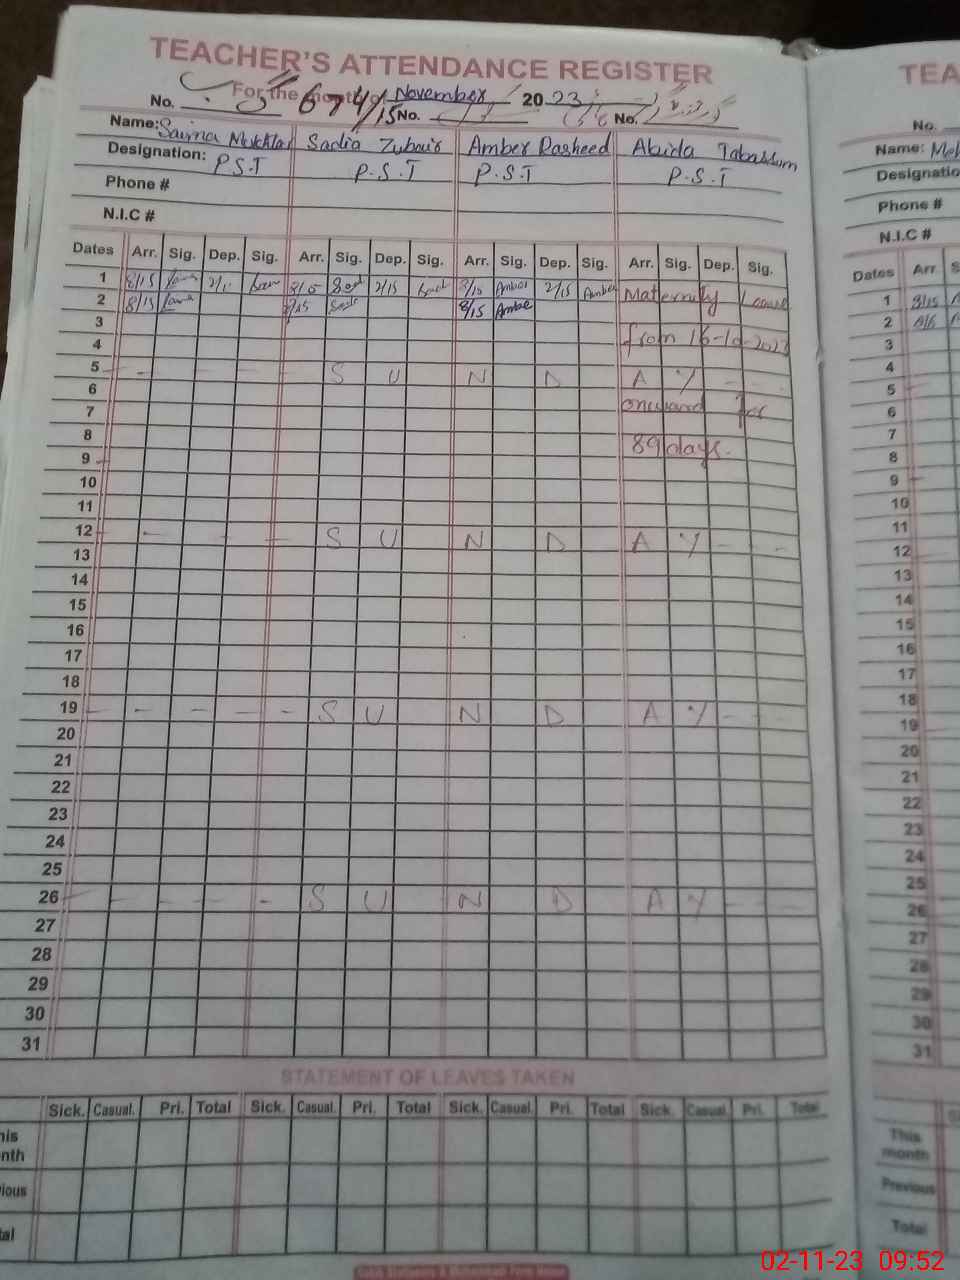 TEACHER'S ATTENDANCE REGISTER TEA
For the month of November 2023
No. 674/15 No. No. No.
Name: Saima Mukhtar Sadia Zubair Amber Rasheed Abida Tabassum Name:
Designation: P.S.T P.S.T P.S.T P.S.T Designatio
Phone # Phone #
N.I.C # N.I.C #
Dates Arr. Sig. Dep. Sig. Arr. Sig. Dep. Sig. Arr. Sig. Dep. Sig. Arr. Sig. Dep. Sig. Dates Arr S
1 8/15 2/15 8/15 2/15 8/15 Amber 2/15 Amber Maternity Leave 1 8/15
2 8/15 8/15 8/15 Ambe 2
3 from 16-10-2023 3
4 4
5 - - - - S U N D A Y - - 5
6 onward for 6
7 7
8 89 days. 8
9 9
10 10
11 11
12 - - - - S U N D A Y - - 12
13 13
14 14
15 15
16 16
17 17
18 18
19 - - - - - S U N D A Y - - 19
20 20
21 21
22 22
23 23
24 24
25 25
26 - - - - - S U N D A Y - - 26
27 27
28 28
29 29
30 30
31 31
STATEMENT OF LEAVES TAKEN
Sick. Casual. Pri. Total Sick. Casual. Pri. Total Sick. Casual. Pri. Total Sick. Casual. Pri. Total
his This
nth month
ious Previous
tal Total
02-11-23 09:52